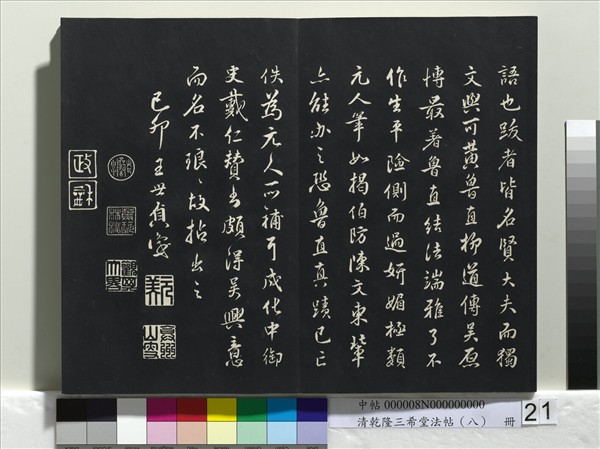 語也跋者皆名賢大夫而獨
文與可黃魯直柳道傳吳原
博最著魯直結法端雅了不
作生平險側而過妍媚極類
元人筆如揭伯防陳文東輩
亦能办之恐魯直真蹟已亡
佚為元人所補耳成化中御
史戴仁贊出頗得吳興意
而名不琅〻故拈出之
己卯王世貞
中帖 000008N000000000
清乾隆三希堂法帖(八) 冊
21